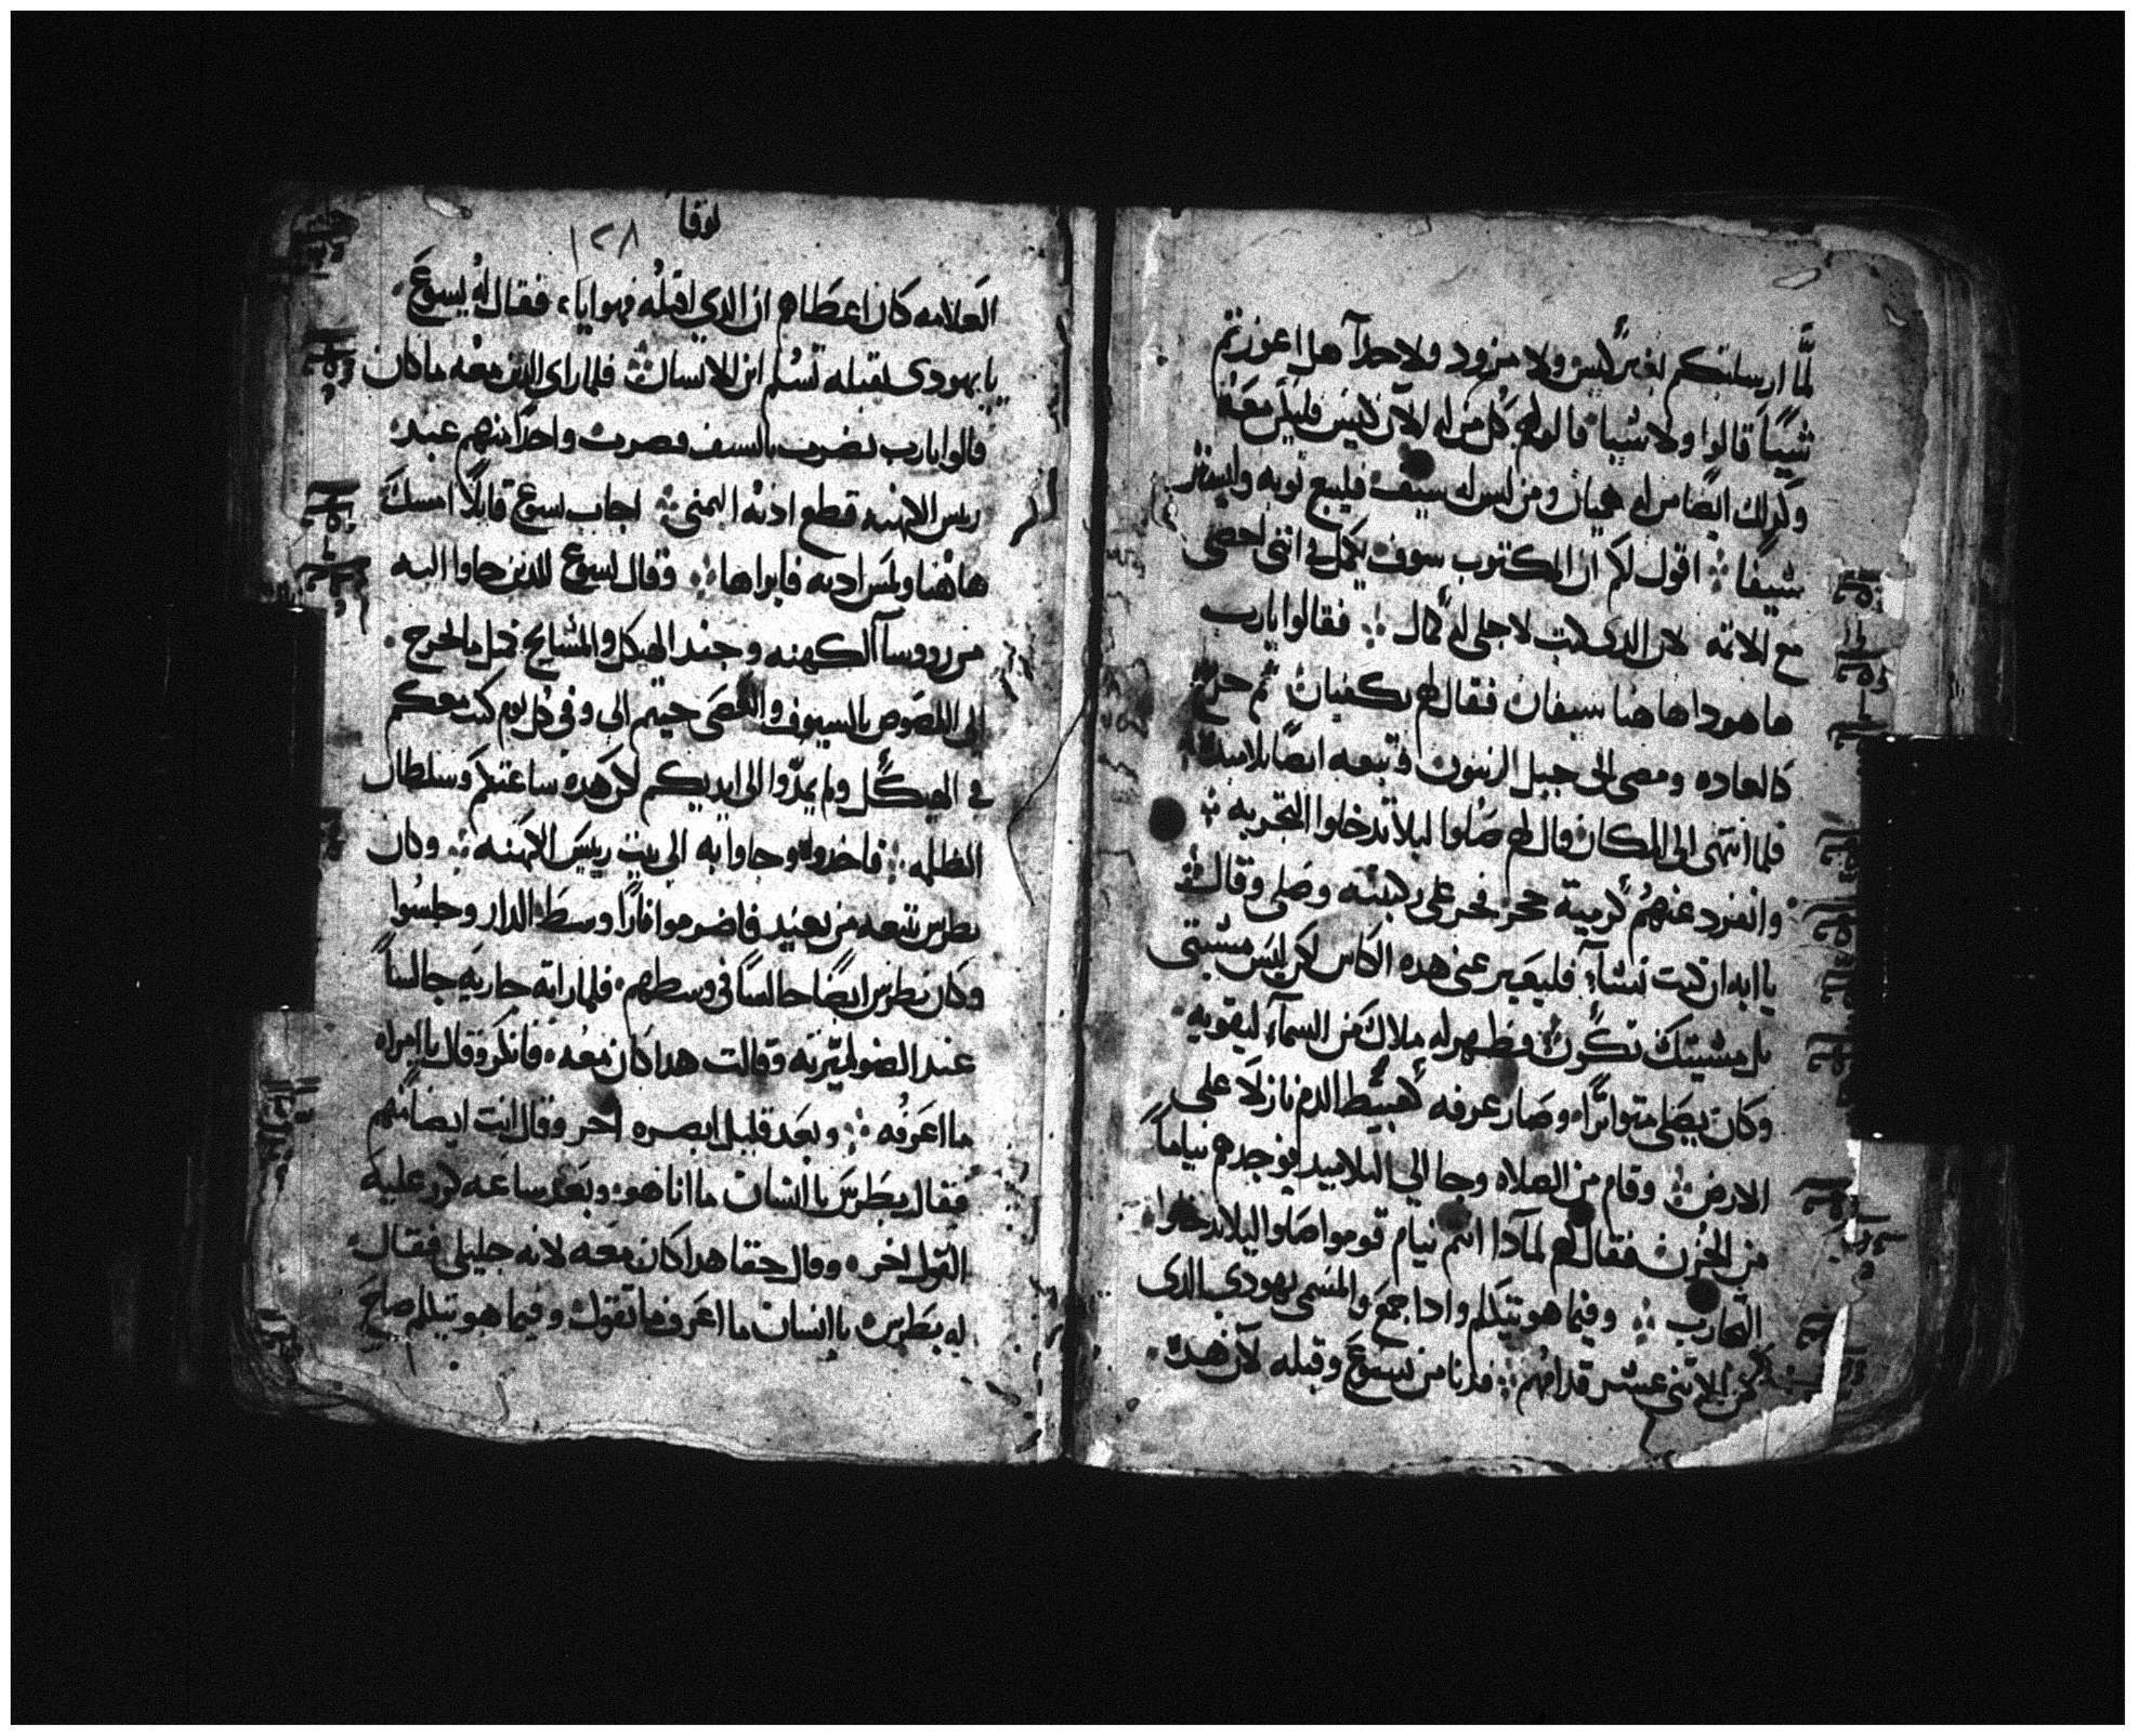 لمَّا ارسلتكم بغير كيس ولا مزود ولا حدآ هل اعوزتم
شيًا قالوا ولا شيا قال لهم كل من له الآن كيس فليحمل معه
وكذلك ايضًا من له هميان ومن ليس له سيف فليبع توبه وليشتر
سيفًا اقول لكم ان المكتوب سوف يكمل في انني احصى
مع الاتمه لان الدى كتب لاجلى له كمال فقالوا يارب
ها هودا هاهنا سيفان فقال لهم يكفيان ثم خرج
كالعاده ومضى الى جبل الزيتون وتبعه ايضًا تلاميده
فلما انتهى الى المكان قال لهم صلوا ليلا تدخلوا التجربه
وانفرد عنهم كرمية حجر فخر على ركبتيه وصلى وقال
يا ابه ان كنت تشآء فليعبر عنى هده الكاس لكن ليس مشيتى
بل مشيتك تكون فظهر له ملاك من السمآء ليقويه
وكان يصلى متواترًا وصار عرقه كعبيط الدم نازلا على
الارض وقام من الصلاه وجا الى التلاميد فوجدهم نيامًا
من الحزن فقال لهم لمادا انتم نيام قوموا صلوا ليلا تدخلوا
التجارب وفيما هو يتكلم وادا جمع والمسمى يهودى الدى
من الاتنى عشر قدامهم فدنا من يسوع وقبله لان هده
لوقا
١٢٨
العلامه كان اعطاهم ان الدى اقبله فهو اياه فقال له يسوع
يا يهودى بقبله تسلم ابن الانسان فلما راى الدين معه ما كان
قالوا يارب نضرب بالسيف فضرب واحدًا منهم عبد
ريس الكهنه قطع ادنه اليمنى اجاب يسوع قايلًا امسك
هاهنا ولمس ادنه فابراها وقال يسوع للدين جاوا اليه
من رووسآ الكهنه وجند الهيكل والمشايخ مثل ما يخرج
الى اللصوص بالسيوف والعصى جيتم الى وفى كل يوم كنت معكم
فى الهيكل ولم يمدّوا الى ايديكم لكن هده ساعتكم وسلطان
الظلمه فاخدوه وجاوا به الى بيت رييس الكهنه وكان
بطرس تتبعه من بعيد فاضرموا نارًا وسط الدار وجلسوا
وكان بطرس ايضًا جالسًا فى وسطهم فلما راته جاريه جالسًا
عند الضو ميزته وقالت هدا كان معه فانكر وقال يا امراه
ما اعرفه وبعد قليل ابصره اخر وقال انت ايضا منهم
فقال بطرس يا انسان ما انا هو وبعد ساعه كرر عليه
القول اخر وقال حقا هدا كان معه لانه جليلى فقال
له بطرس يا انسان ما اعرف ما تقول وفيما هو يتكلم صاح